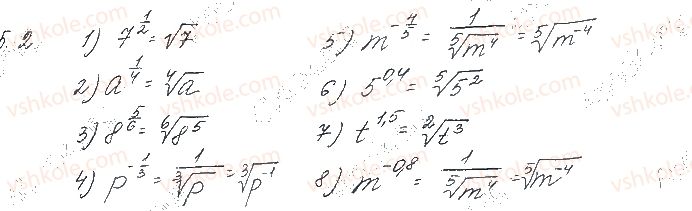 5.2. 1) 7^{1/2} = √7
2) a^{1/4} = ⁴√a
3) 8^{5/6} = ⁶√(8⁵)
4) p^{-1/3} = 1/³√p = ³√(p⁻¹)
5) m^{-4/5} = 1/⁵√(m⁴) = ⁵√(m⁻⁴)
6) 5^{0,4} = ⁵√(5²)
7) t^{1,5} = ²√(t³)
8) m^{-0,8} = 1/⁵√(m⁴) = ⁵√(m⁻⁴)
vshkole.com